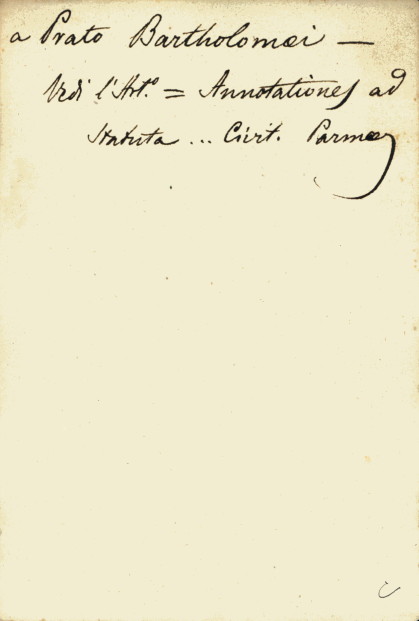 a Prato Bartholomæi —
Vedi l'Art.º = Annotationes ad
Statuta ... Civit. Parmæ